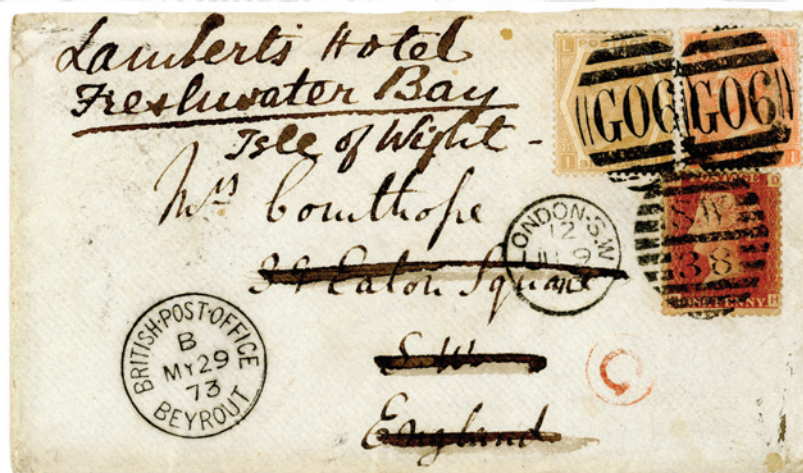 Lambert's Hotel
Freshwater Bay
Isle of Wight -
Mrs Courthope
39 Eaton Square
S. W.
England
G06 G06
LONDON·S.W
12
9
BRITISH·POST·OFFICE
B
MY 29
73
BEYROUT
S.W
38
C